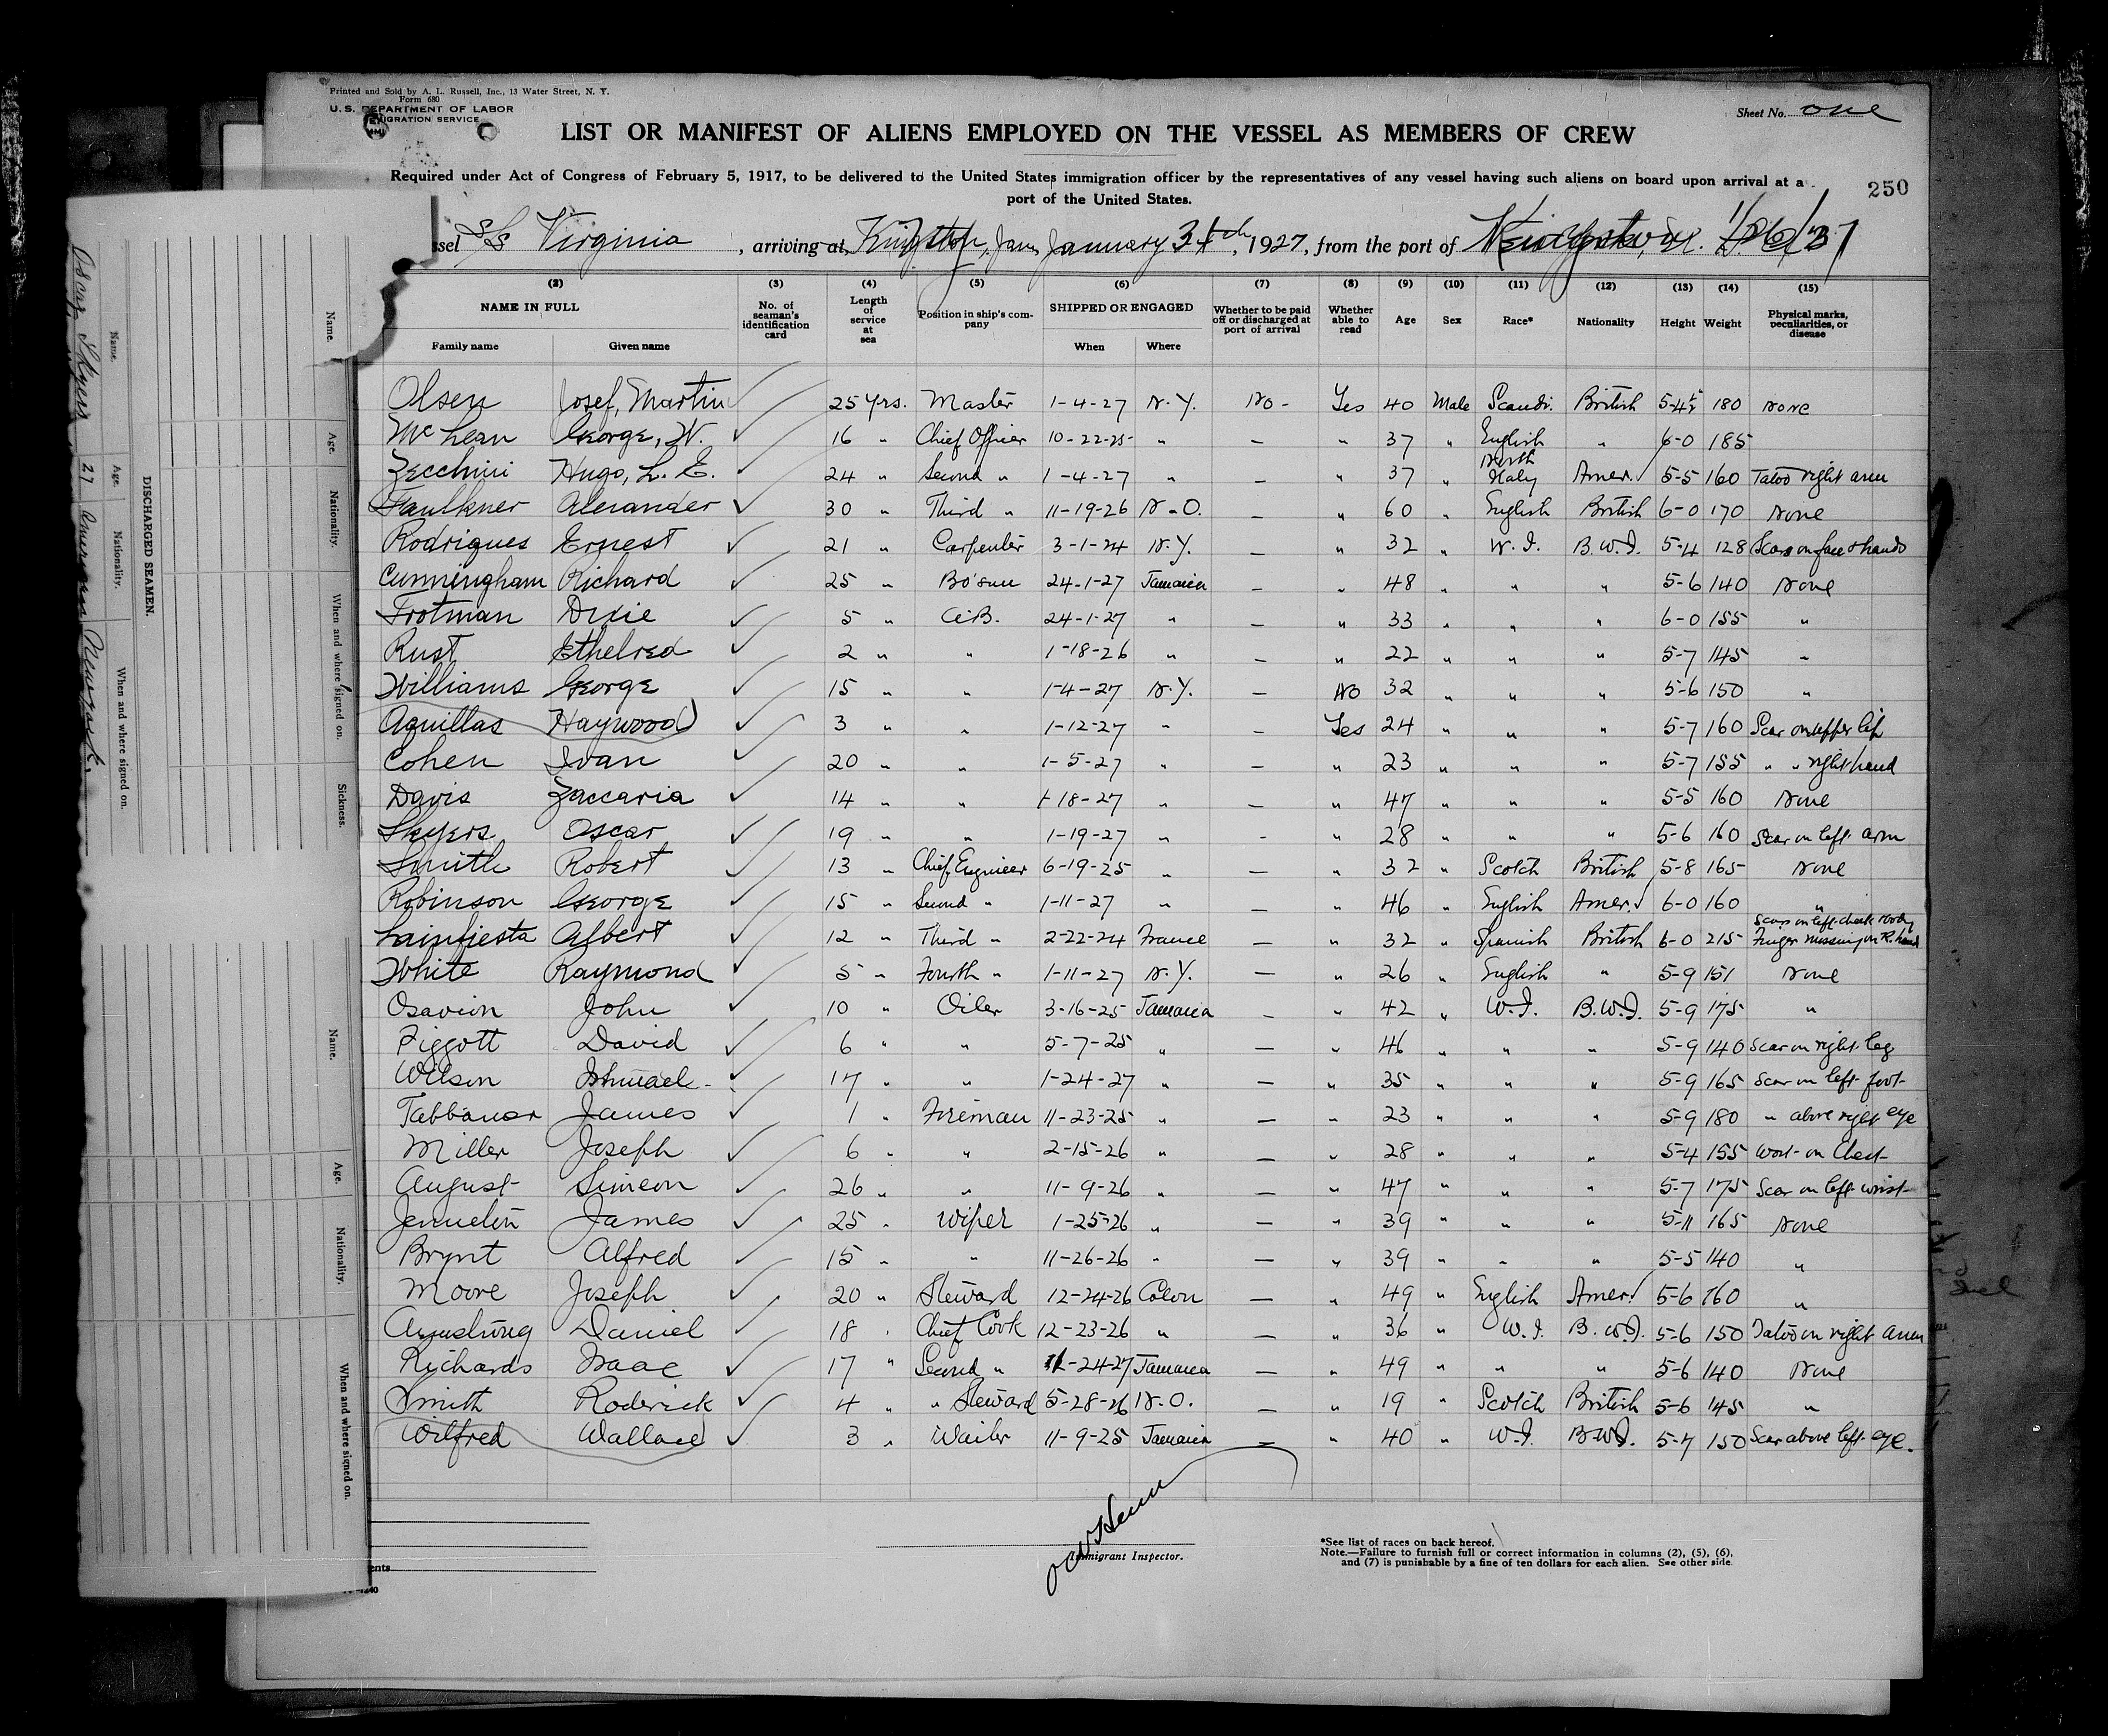 Printed and Sold by A. L. Russell, Inc., 13 Water Street, N. Y.
Form 680
U. S. DEPARTMENT OF LABOR
IMMIGRATION SERVICE
Sheet No. one
LIST OR MANIFEST OF ALIENS EMPLOYED ON THE VESSEL AS MEMBERS OF CREW
Required under Act of Congress of February 5, 1917, to be delivered to the United States immigration officer by the representatives of any vessel having such aliens on board upon arrival at a
port of the United States.
250
ssel S/S Virginia, arriving at Kingston, Jam, January 1927, from the port of
(2) (3) (4) (5) (6) (7) (8) (9) (10) (11) (12) (13) (14) (15)
NAME IN FULL No. of seaman's identification card Length of service at sea Position in ship's company SHIPPED OR ENGAGED Whether to be paid off or discharged at port of arrival Whether able to read Age Sex Race* Nationality Height Weight Physical marks, peculiarities, or disease
Family name Given name When Where
Olsen Josef, Martin 25 yrs. Master 1-4-27 N.Y. No - Yes 40 Male Scandi. British 5-4½ 180 None
McLean George, W. 16 " Chief Officer 10-22-25 " - " 37 " English " 6-0 185
Zecchini Hugo, L. E. 24 " Second " 1-4-27 " - " 37 " North Italy Amer. 5-5 160 Tatoo right arm
Faulkner Alexander 30 " Third " 11-19-26 N.O. - " 60 " English British 6-0 170 None
Rodriques Ernest 21 " Carpenter 3-1-24 N.Y. - " 32 " W.I. B.W.I. 5-4 128 Scars on face & hands
Cunningham Richard 25 " Bo'sun 24-1-27 Jamaica - " 48 " " " 5-6 140 None
Trotman Dixie 5 " A.B. 24-1-27 " - " 33 " " " 6-0 155 "
Rust Ethelred 2 " " 1-18-26 " - " 22 " " " 5-7 145 "
Williams George 15 " " 1-4-27 N.Y. - No 32 " " " 5-6 150 "
Aquillas Haywood 3 " " 1-12-27 " - Yes 24 " " " 5-7 160 Scar on upper lip
Cohen Ivan 20 " " 1-5-27 " - " 23 " " " 5-7 155 " " right hand
Davis Zaccaria 14 " " 1-18-27 " - " 47 " " " 5-5 160 None
Skyers Oscar 19 " " 1-19-27 " - " 28 " " " 5-6 160 Scar on left arm
Smith Robert 13 " Chief Engineer 6-19-25 " - " 32 " Scotch British 5-8 165 None
Robinson George 15 " Second " 1-11-27 " - " 46 " English Amer. 6-0 160 "
Lainfiesta Albert 12 " Third " 2-22-24 France - " 32 " Spanish British 6-0 215 Scars on left cheek & body Finger missing on R. hand
White Raymond 5 " Fourth " 1-11-27 N.Y. - " 26 " English " 5-9 151 None
Osavion John 10 " Oiler 3-16-25 Jamaica - " 42 " W.I. B.W.I. 5-9 175 "
Piggott David 6 " " 5-7-25 " - " 46 " " " 5-9 140 Scar on right leg
Wilson Ishmael 17 " " 1-24-27 " - " 35 " " " 5-9 165 Scar on left foot
James 1 " Fireman 11-23-25 " - " 23 " " " 5-9 180 " above right eye
Miller Joseph 6 " " 2-15-26 " - " 28 " " " 5-4 155 Wort on Chest
August Simeon 26 " " 11-9-26 " - " 47 " " " 5-7 175 Scar on left wrist
James 25 " Wiper 1-25-26 " - " 39 " " " 5-11 165 None
Brynt Alfred 15 " " 11-26-26 " - " 39 " " " 5-5 140 "
Moore Joseph 20 " Steward 12-24-26 Colon - " 49 " English Amer. 5-6 160 "
Armstrong Daniel 18 " Chief Cook 12-23-26 " - " 36 " W.I. B.W.I. 5-6 150 Tatoo on right arm
Richards Isaac 17 " Second " 1-24-27 Jamaica - " 49 " " " 5-6 140 None
Smith Roderick 4 " " Steward 5-28-26 N.O. - " 19 " Scotch British 5-6 145 "
Wilfred Wallace 3 " Waiter 11-9-25 Jamaica - " 40 " W.I. B.W.I. 5-7 150 Scar above left eye.
Immigrant Inspector.
*See list of races on back hereof.
Note.—Failure to furnish full or correct information in columns (2), (5), (6),
and (7) is punishable by a fine of ten dollars for each alien. See other side.
DISCHARGED SEAMEN.
Name. Age. Nationality. When and where signed on.
Oscar Skyers 27 American New York.
Name. Age. Nationality. When and where signed on. Sickness.
Name. Age. Nationality. When and where signed on.